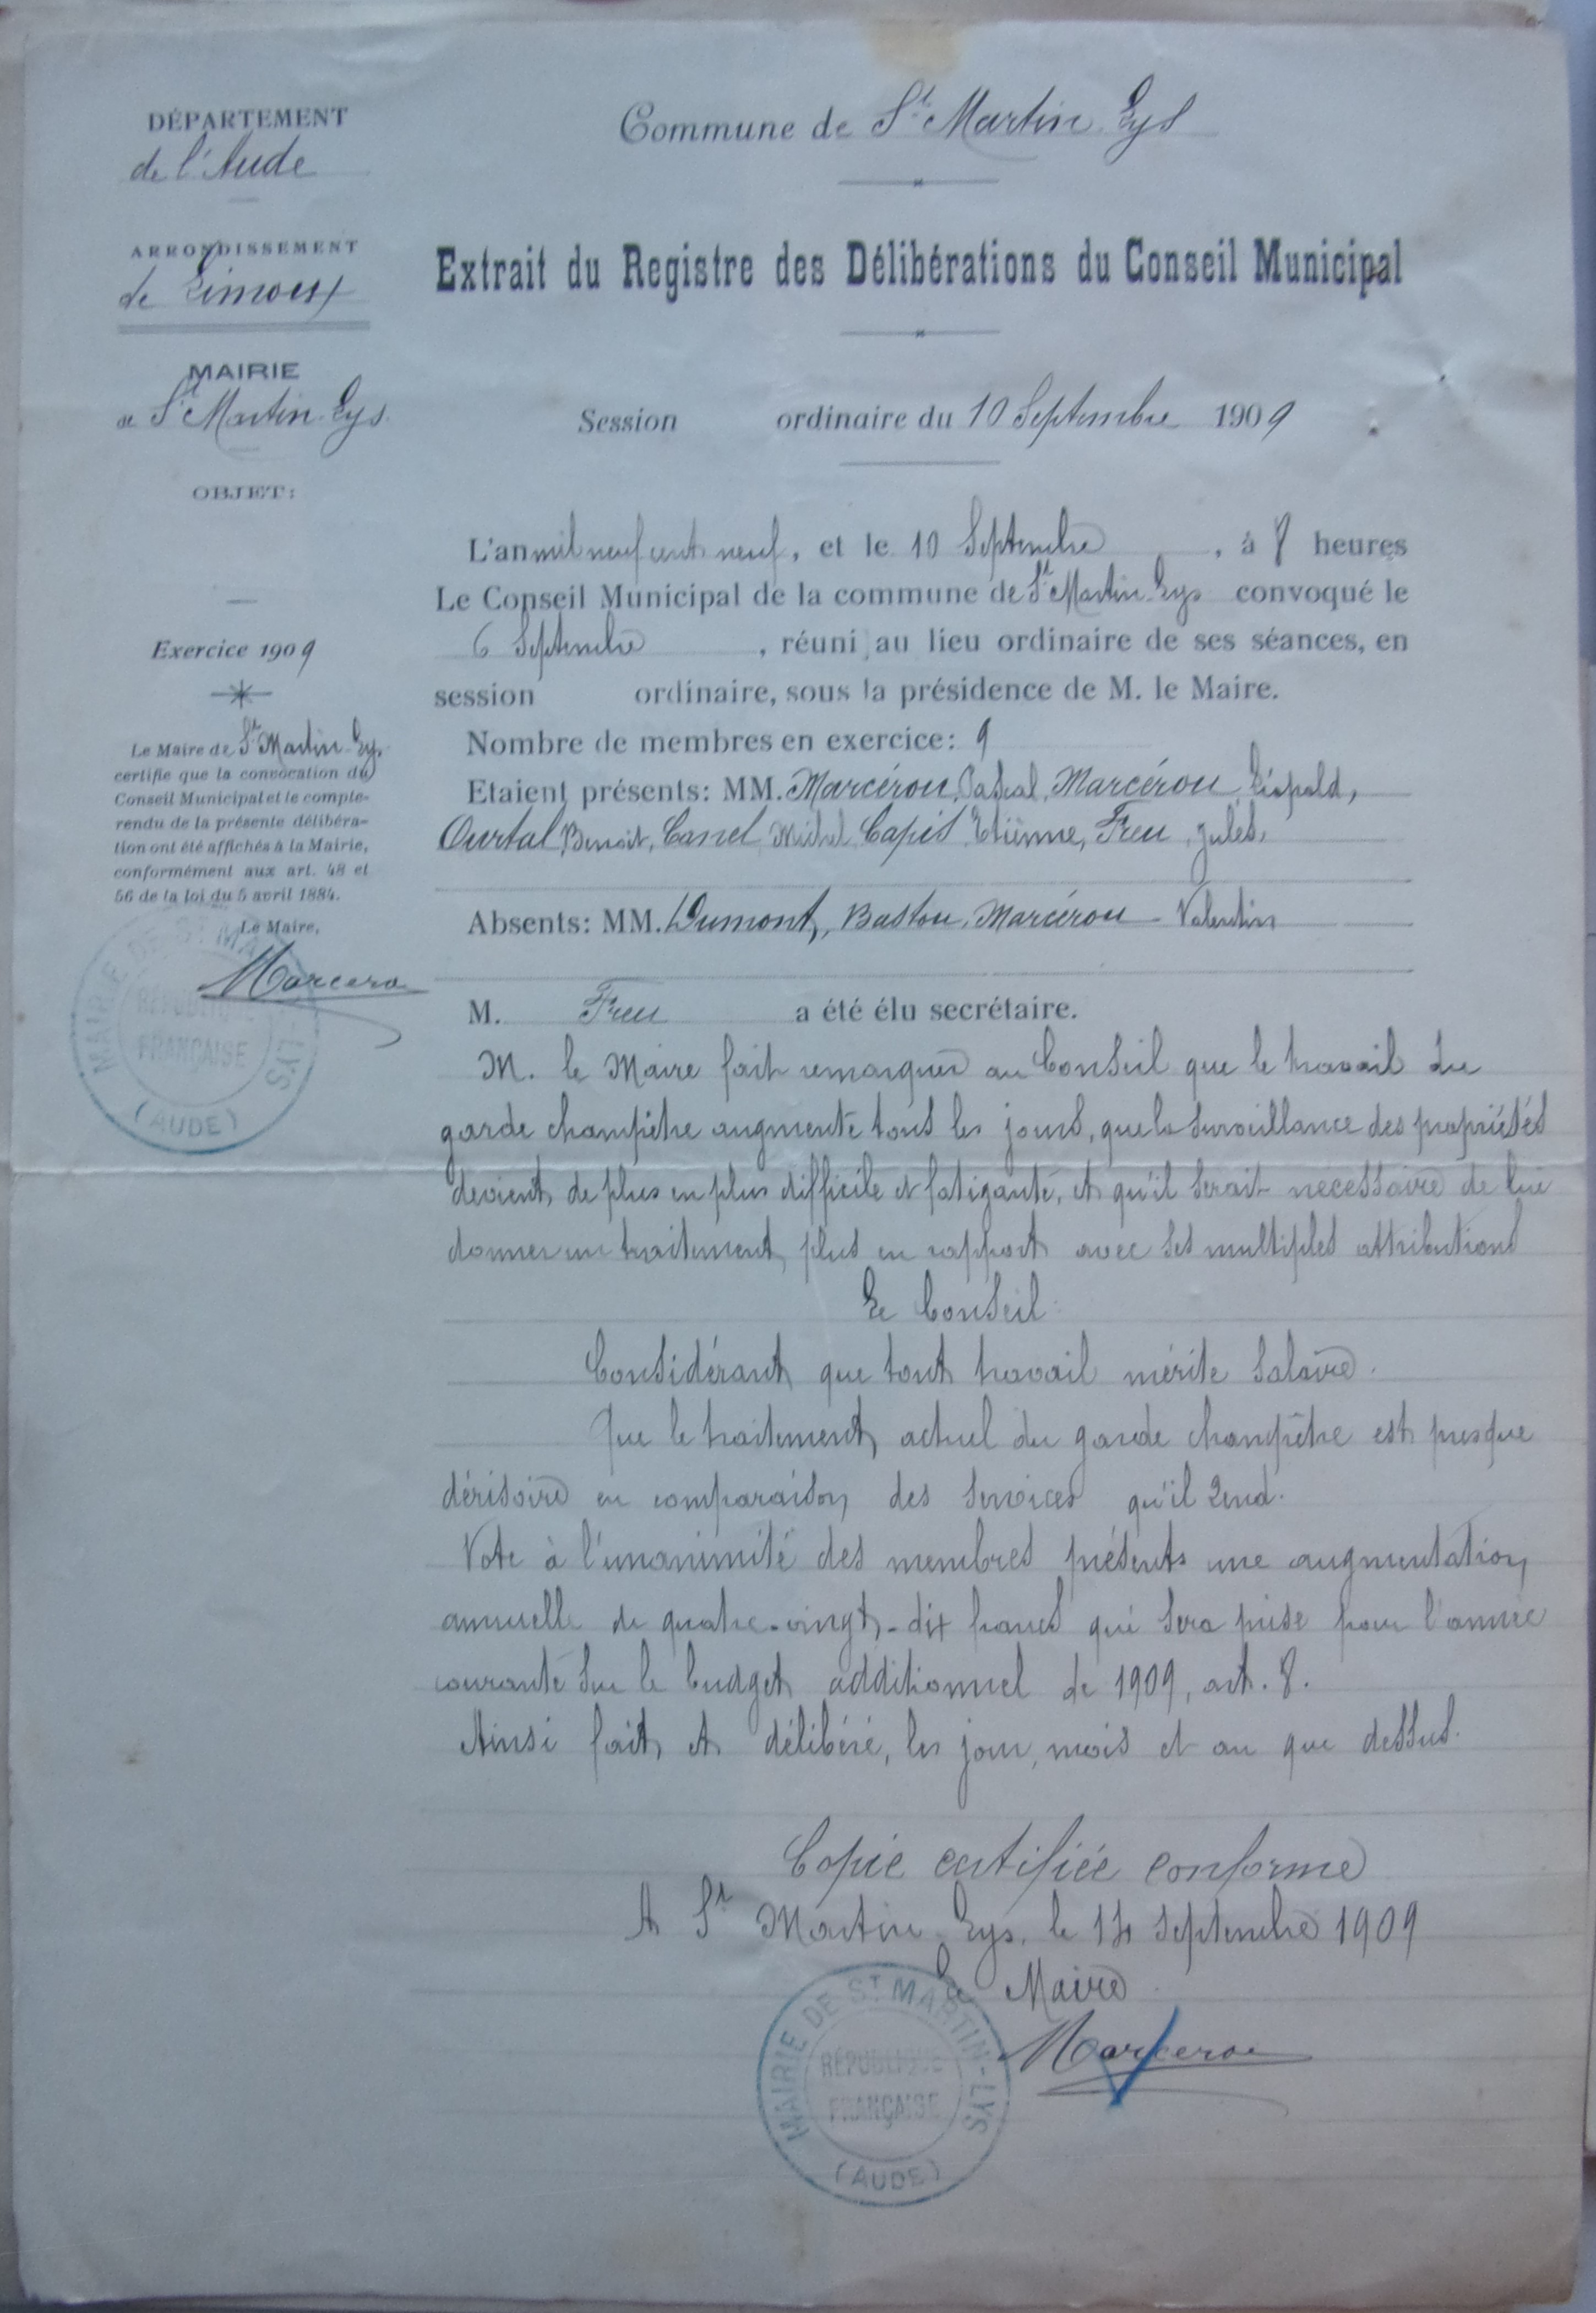 DÉPARTEMENT
de l'Aude
ARRONDISSEMENT
de Limoux
MAIRIE
de St Martin-Lys.
OBJET:
Exercice 1909
Le Maire de St Martin-Lys
certifie que la convocation du
Conseil Municipal et le compte-
rendu de la présente délibéra-
tion ont été affichés à la Mairie,
conformément aux art. 48 et
56 de la loi du 5 avril 1884.
Le Maire,
Marcerou
MAIRIE DE ST MARTIN-LYS
RÉPUBLIQUE
FRANÇAISE
(AUDE)
Commune de St Martin Lys
Extrait du Registre des Délibérations du Conseil Municipal
Session ordinaire du 10 Septembre 1909
L'an mil neuf cent neuf, et le 10 Septembre, à 8 heures
Le Conseil Municipal de la commune de St Martin-Lys convoqué le
6 Septembre, réuni au lieu ordinaire de ses séances, en
session ordinaire, sous la présidence de M. le Maire.
Nombre de membres en exercice: 9
Etaient présents: MM. Marcérou, Pascal, Marcérou, Léopold,
Ourtal, Benoit, Canel, Michel, Capis, Etiènne, Freu, Jules.
Absents: MM. Dumont, Bastou, Marcérou - Valentin
M. Freu a été élu secrétaire.
M. le Maire fait remarquer au Conseil que le travail du
garde champêtre augmente tous les jours, que la surveillance des propriétés
devient de plus en plus difficile et fatigante, et qu'il serait necessaire de lui
donner un traitement plus en rapport avec ses multiples attributions
Le Conseil:
Considérant que tout travail mérite salaire.
Que le traitement actuel du garde champêtre est presque
dérisoire en comparaison des services qu'il rend.
Vote à l'unanimité des membres présents une augmentation
annuelle de quatre-vingt-dix francs qui sera prise pour l'année
courante sur le budget additionnel de 1909, art. 8.
Ainsi fait et délibéré, les jour, mois et an que dessus.
Copie certifiée conforme
A St Martin-Lys, le 14 Septembre 1909
Le Maire
Marcerou
MAIRIE DE ST MARTIN-LYS
RÉPUBLIQUE
FRANÇAISE
(AUDE)